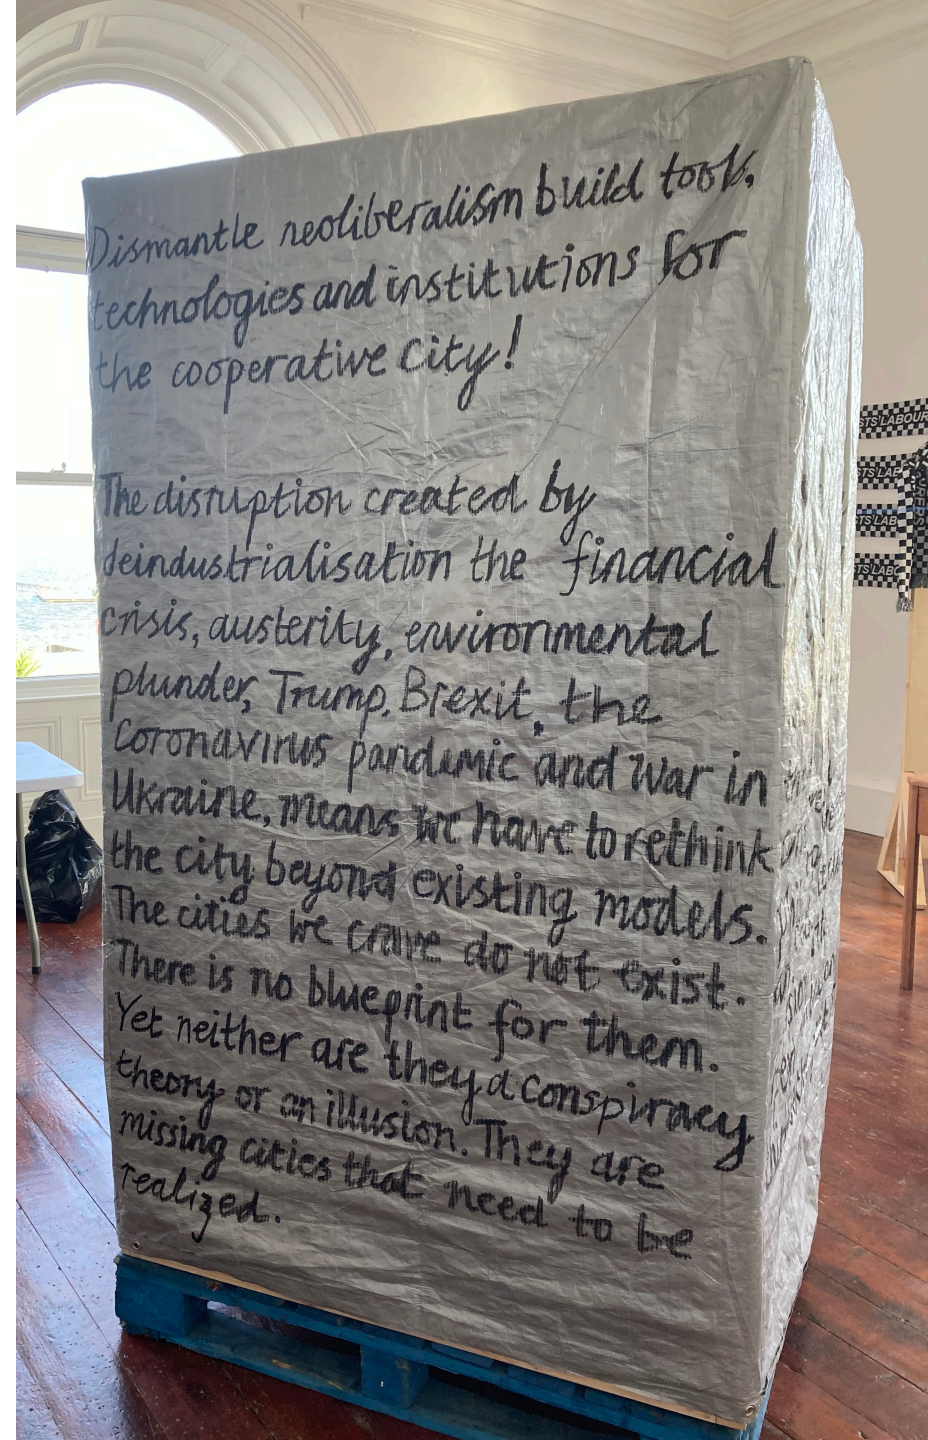 Dismantle neoliberalism build tools,
technologies and institutions for
the cooperative city!
The disruption created by
deindustrialisation the financial
crisis, austerity, environmental
plunder, Trump, Brexit, the
Coronavirus pandemic and war in
Ukraine, means we have to rethink
the city beyond existing models.
The cities we crave do not exist.
There is no blueprint for them.
Yet neither are they a conspiracy
theory or an illusion. They are
missing cities that need to be
realized.
STS LABOUR
STS LAB
STS LAB
STS LABO